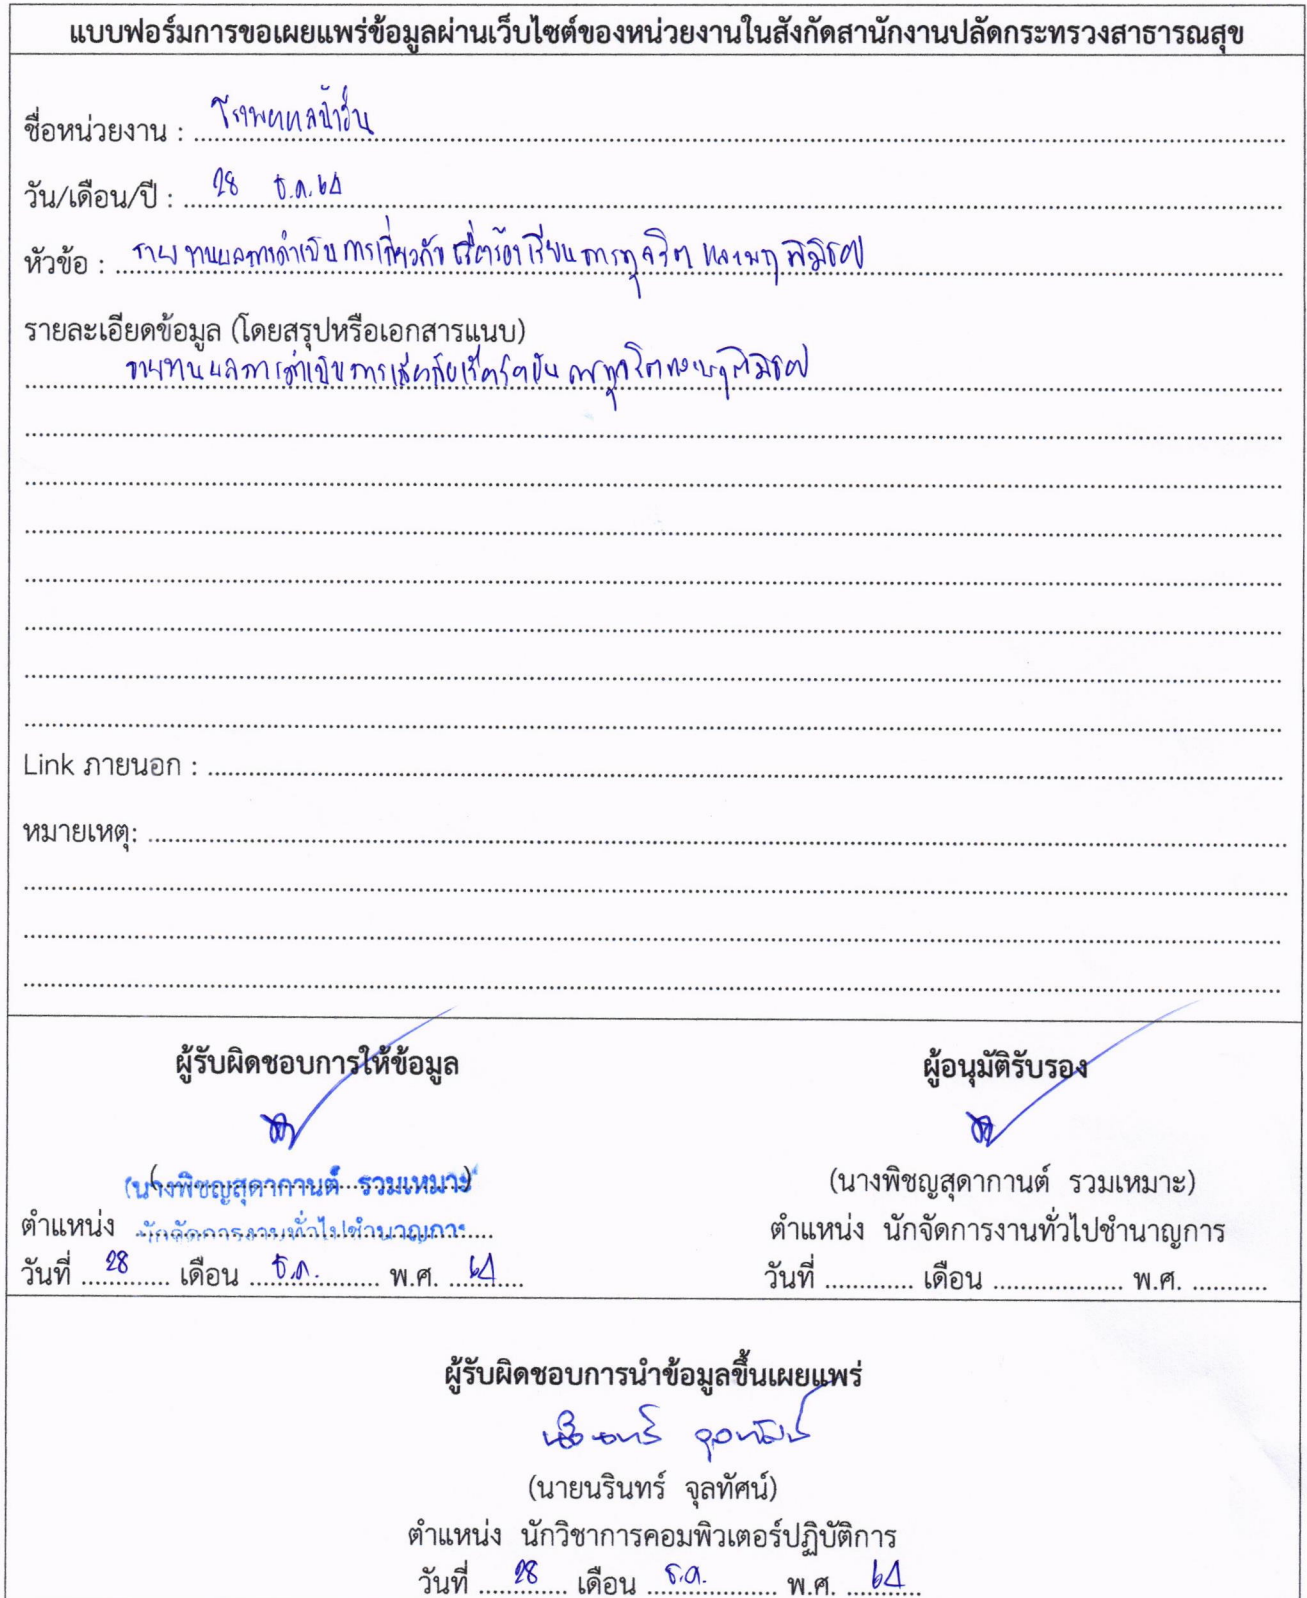 แบบฟอร์มการขอเผยแพร่ข้อมูลผ่านเว็บไซต์ของหน่วยงานในสังกัดสานักงานปลัดกระทรวงสาธารณสุข
ชื่อหน่วยงาน : โรงพยาบาลน้ำขุ่น
วัน/เดือน/ปี : 28 ธ.ค. 64
หัวข้อ : รายงานผลการดำเนินการเกี่ยวกับเรื่องร้องเรียนการทุจริตและประพฤติมิชอบ
รายละเอียดข้อมูล (โดยสรุปหรือเอกสารแนบ)
รายงานผลการดำเนินการเกี่ยวกับเรื่องร้องเรียนการทุจริตและประพฤติมิชอบ
Link ภายนอก :
หมายเหตุ:
ผู้รับผิดชอบการให้ข้อมูล
(นางพิชญสุดากานต์ รวมเหมาะ)
ตำแหน่ง นักจัดการงานทั่วไปชำนาญการ
วันที่ 28 เดือน ธ.ค. พ.ศ. 64
ผู้อนุมัติรับรอง
(นางพิชญสุดากานต์ รวมเหมาะ)
ตำแหน่ง นักจัดการงานทั่วไปชำนาญการ
วันที่ เดือน พ.ศ.
ผู้รับผิดชอบการนำข้อมูลขึ้นเผยแพร่
(นายนรินทร์ จุลทัศน์)
ตำแหน่ง นักวิชาการคอมพิวเตอร์ปฏิบัติการ
วันที่ 28 เดือน ธ.ค. พ.ศ. 64